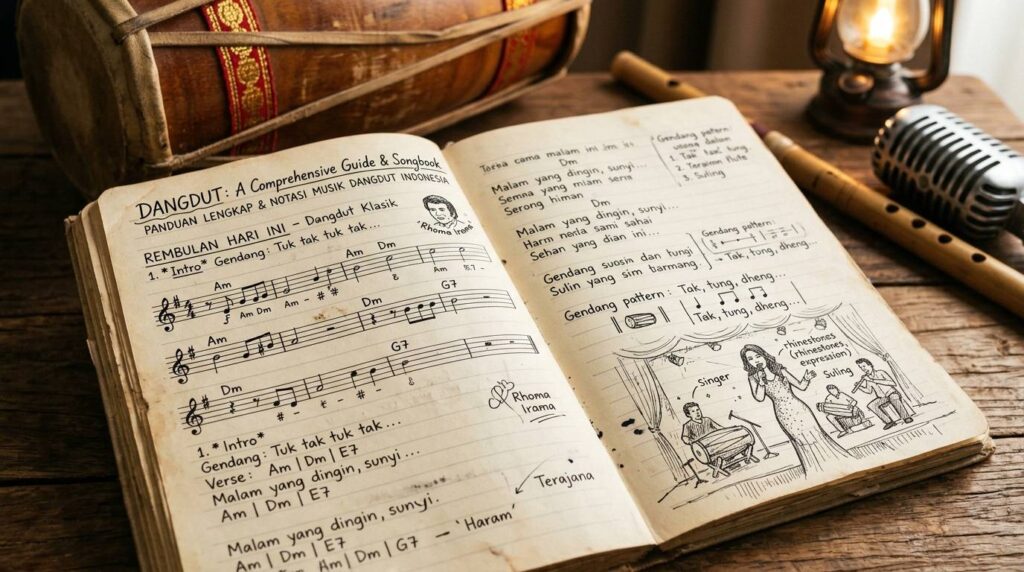 DANGDUT: A Comprehensive Guide & Songbook
PANDUAN LENGKAP & NOTASI MUSIK DANGDUT INDONESIA
REMBULAN HARI INI - Dangdut Klasik
1. *Intro* Gendang: Tuk tak tuk tak...
Rhoma
Am Am Dm
Am Dm Am - # # Am
Am Dm G7
Dm G7
Rhoma
Irama
1. *Intro*
Gendang: Tuk tak tuk tak...
Verse: Am | Dm | E7
Malam yang dingin, sunyi...
Am | Dm | E7
Terajana
Malam yang dingin, sunyi.
Am | Dm | E7
Am | Dm | G7 - 'Haram'
cama malam ini
Dm
Malam yang dingin, sunyi...
Semna yang miam sera
Serong himan
Dm
Malam yang dingin, sunyi...
Harm nenla sami sahai
Sehan yang dian ini...
Gendang suosin dan tungi
Sulin yang sim barmang.
Gendang pattern:
1. Tak tak tung
2. Terapinn flute
3. Suling
Gendang pattern:
- Tak, tung, dheng...
Gendang pattern: Tak, tung, dheng...
Tak, tung, dheng...
Singer
rhinestones
(rhinestones,
expression)
Suling